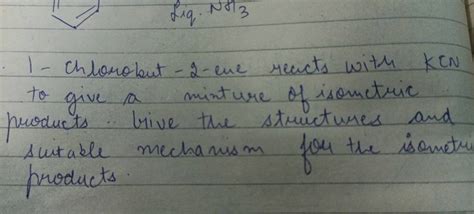 Liq. NH3
1- Chlorobut-2-ene reacts with KCN
to give a mixture of isometric
products. Give the structures and
suitable mechanism for the isometric
products.